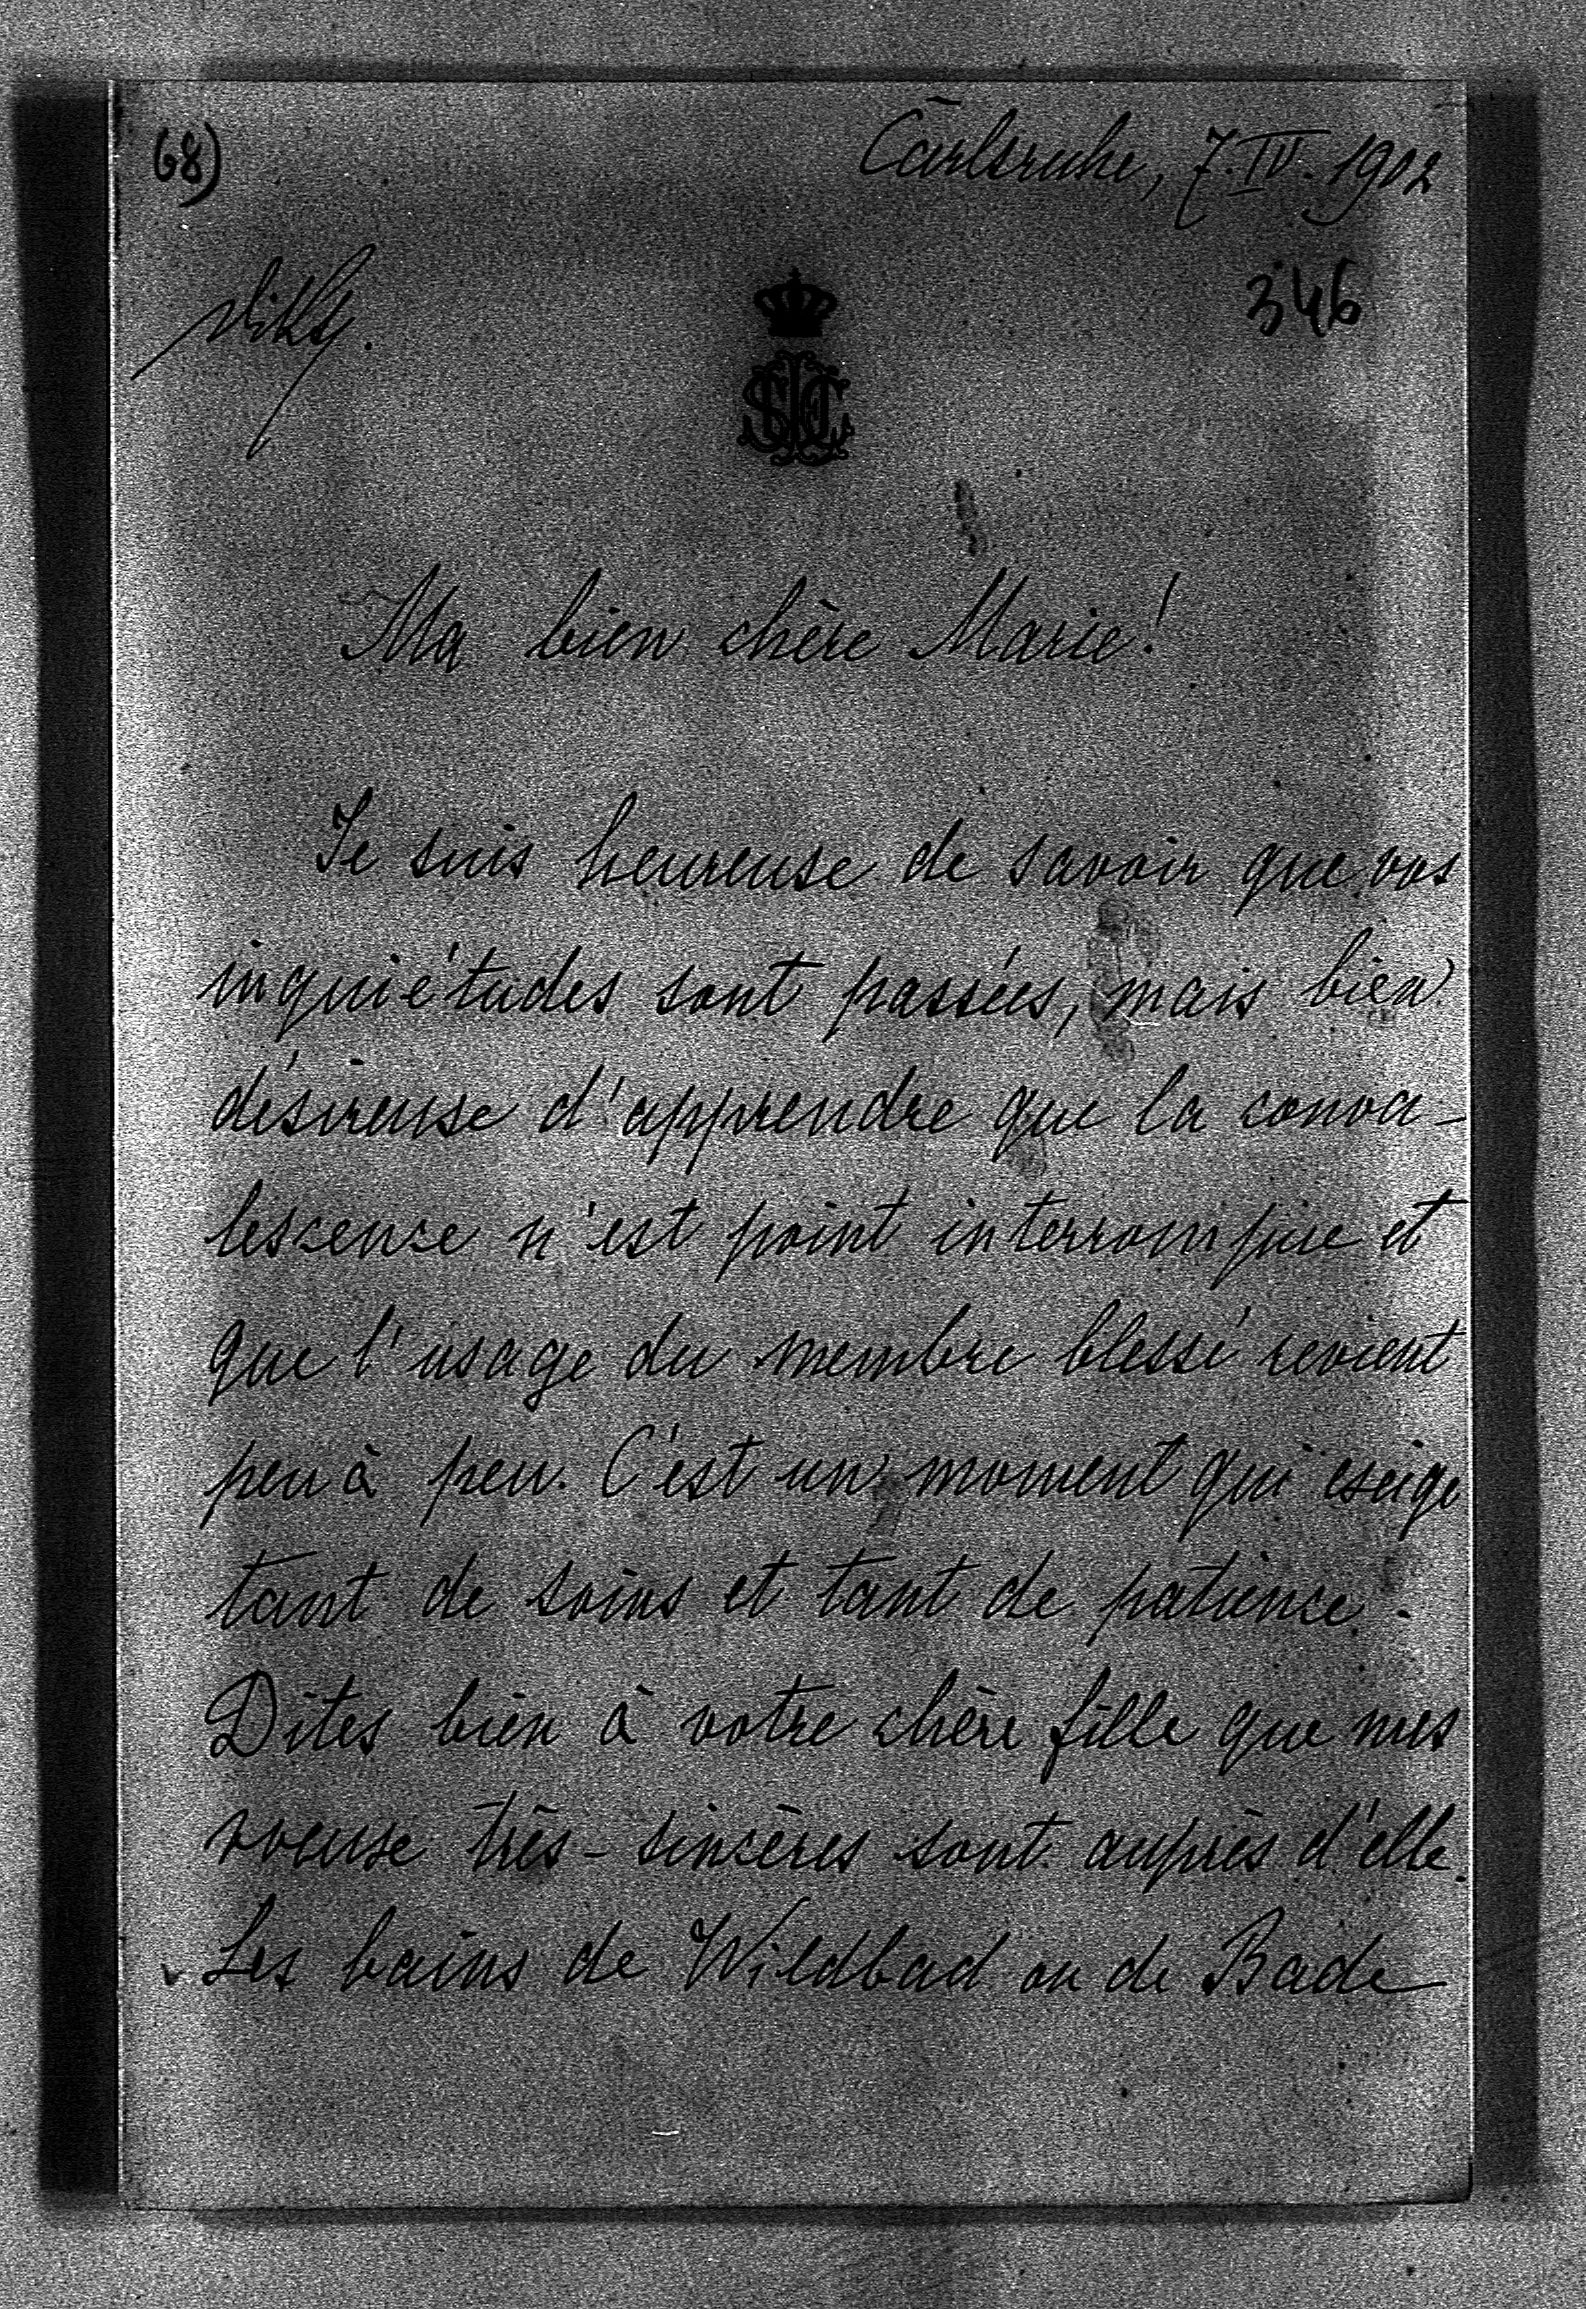 68)
Carlsruhe, 7.IV.1902
346
Ma bien chère Marie!
Je suis heureuse de savoir que vos
inquiétudes sont passées, mais bien
désireuse d'apprendre que la conva-
lescence n'est point interrompue et
que l'usage du membre blessé revient
peu à peu. C'est un moment qui exige
tant de soins et tant de patience.
Dites bien à votre chère fille que mes
voeux très-sincères sont auprès d'elle.
Les bains de Wildbad ou de Bade